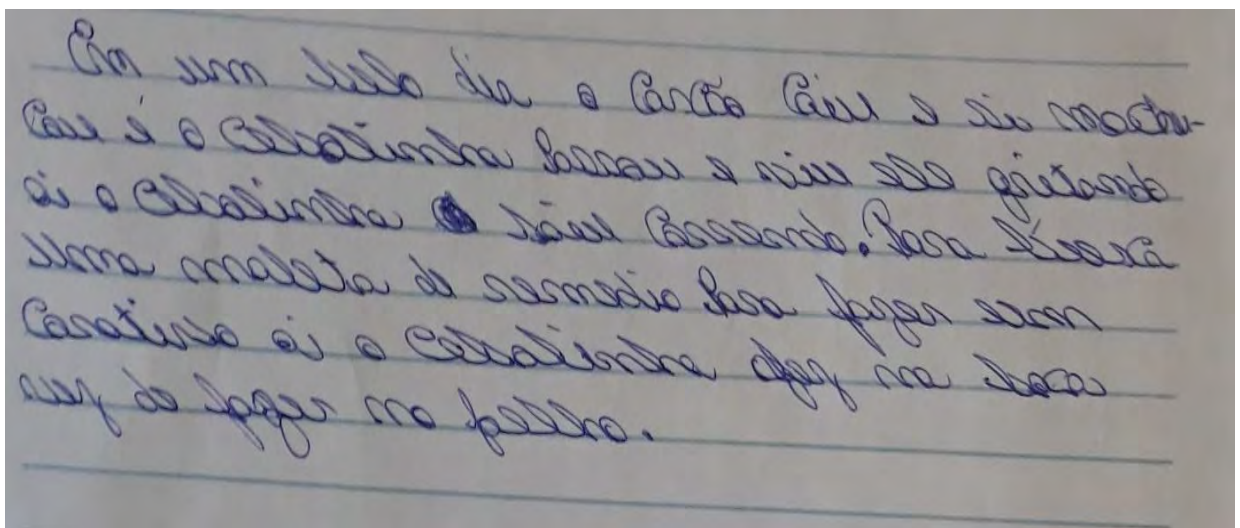 Em um belo dia o Cascão Caiu e si machu-
Cou e o Cebolinha Passou e viu ele gritando
ai o Cebolinha saiu Correndo. Para buscá
uma maleta de remedio Para fazer um
Curativo ai o Cebolinha fez na boca
vez de fazer no joelho.